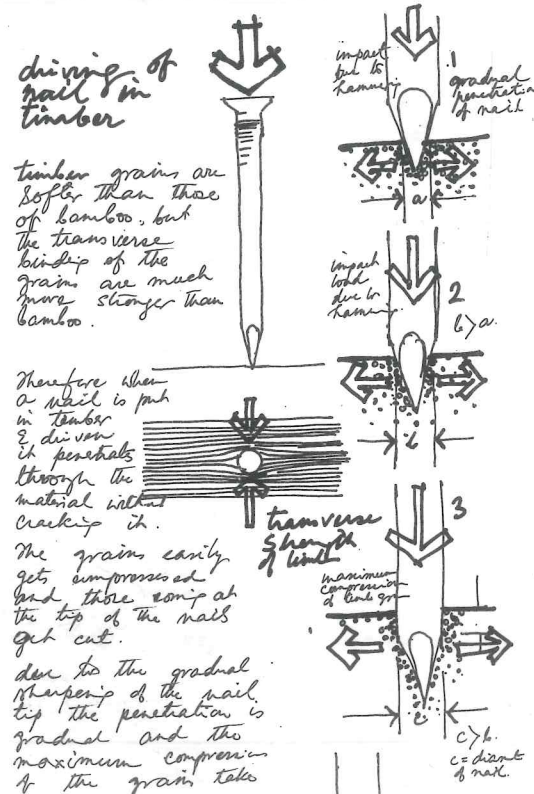 driving of
nail in
timber
timber grains are
softer than those
of bamboo, but
the transverse
binding of the
grains are much
more stronger than
bamboo.
Therefore when
a nail is put
in timber
& driven
it penetrates
through the
material without
cracking it.
The grains easily
gets compressed
and those coming at
the tip of the nails
get cut.
due to the gradual
sharpening of the nail
tip the penetration is
gradual and the
maximum compression
of the grain take
transverse
strength
of timb
impact
due to
hammering
1
gradual
penetration
of nail
a
impact
load
due to
hammering
2
b>a.
b
3
maximum
compression
of timb gr
c
c>b.
c=diamet
of nail.